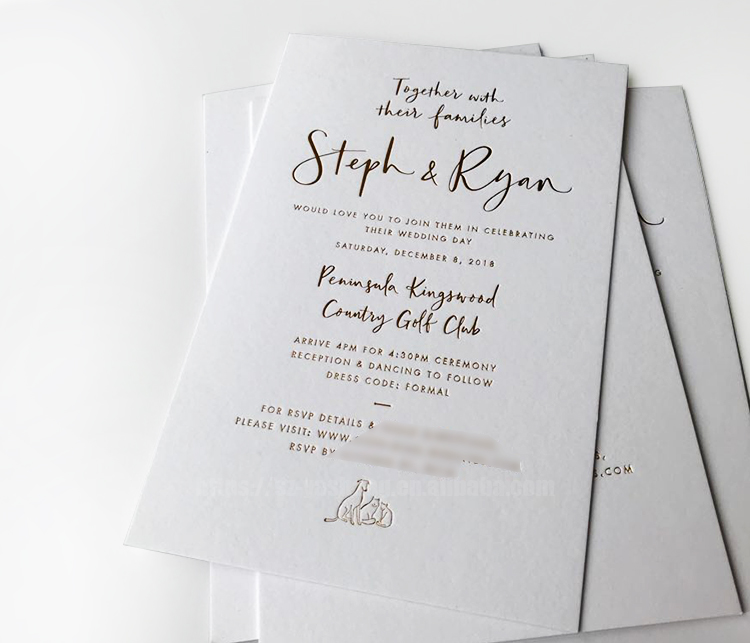 Together with
their families
Steph & Ryan
WOULD LOVE YOU TO JOIN THEM IN CELEBRATING
THEIR WEDDING DAY
SATURDAY, DECEMBER 8, 2018
Peninsula Kingswood
Country Golf Club
ARRIVE 4PM FOR 4:30PM CEREMONY
RECEPTION & DANCING TO FOLLOW
DRESS CODE: FORMAL
FOR RSVP DETAILS &
PLEASE VISIT: WWW.
RSVP BY
.COM